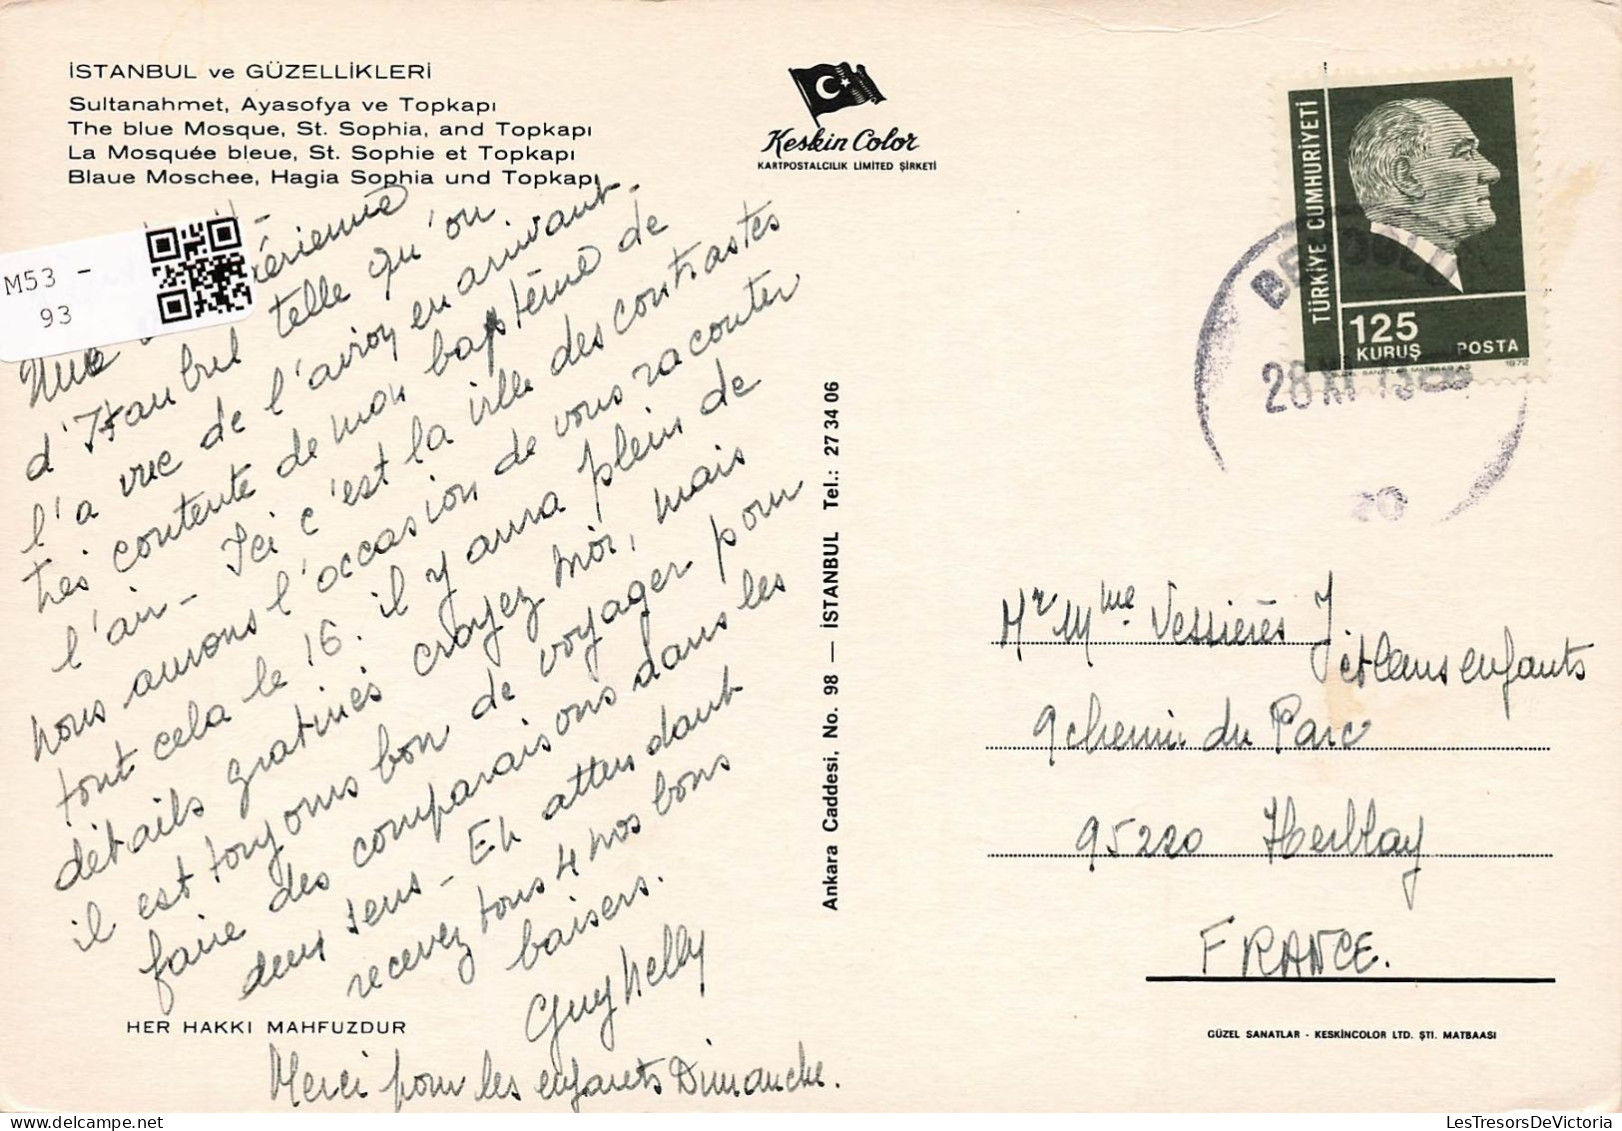 İSTANBUL ve GÜZELLİKLERİ
Sultanahmet, Ayasofya ve Topkapı
The blue Mosque, St. Sophia, and Topkapı
La Mosquée bleue, St. Sophie et Topkapı
Blaue Moschee, Hagia Sophia und Topkapı
M53 -
93
Vue aérienne
d'Istanbul telle qu'on
l'a vue de l'avion en arrivant -
très contente de mon baptème de
l'air - Ici c'est la ville des contrastes
nous aurons l'occasion de vous raconter
tout cela le 16. il y aura plein de
détails gratinés croyez moi, mais
il est toujours bon de voyager pour
faire des comparaisons dans les
deux sens - En attendant
recevez tous 4 nos bons
baisers.
Guy Nelly
HER HAKKI MAHFUZDUR
Merci pour les enfants Dimanche.
Keskin Color
KARTPOSTALCILIK LIMITED ŞİRKETİ
Ankara Caddesi, No. 98 — İSTANBUL Tel.: 27 34 06
TÜRKİYE CUMHURİYETİ
125
KURUŞ
POSTA
1972
BEYOĞLU
28 XI
Mr Mme Vessières J
et leurs enfants
9 chemin du Parc
95220 Herblay
FRANCE.
GÜZEL SANATLAR - KESKİNCOLOR LTD. ŞTİ. MATBAASI
LesTresorsDeVictoria